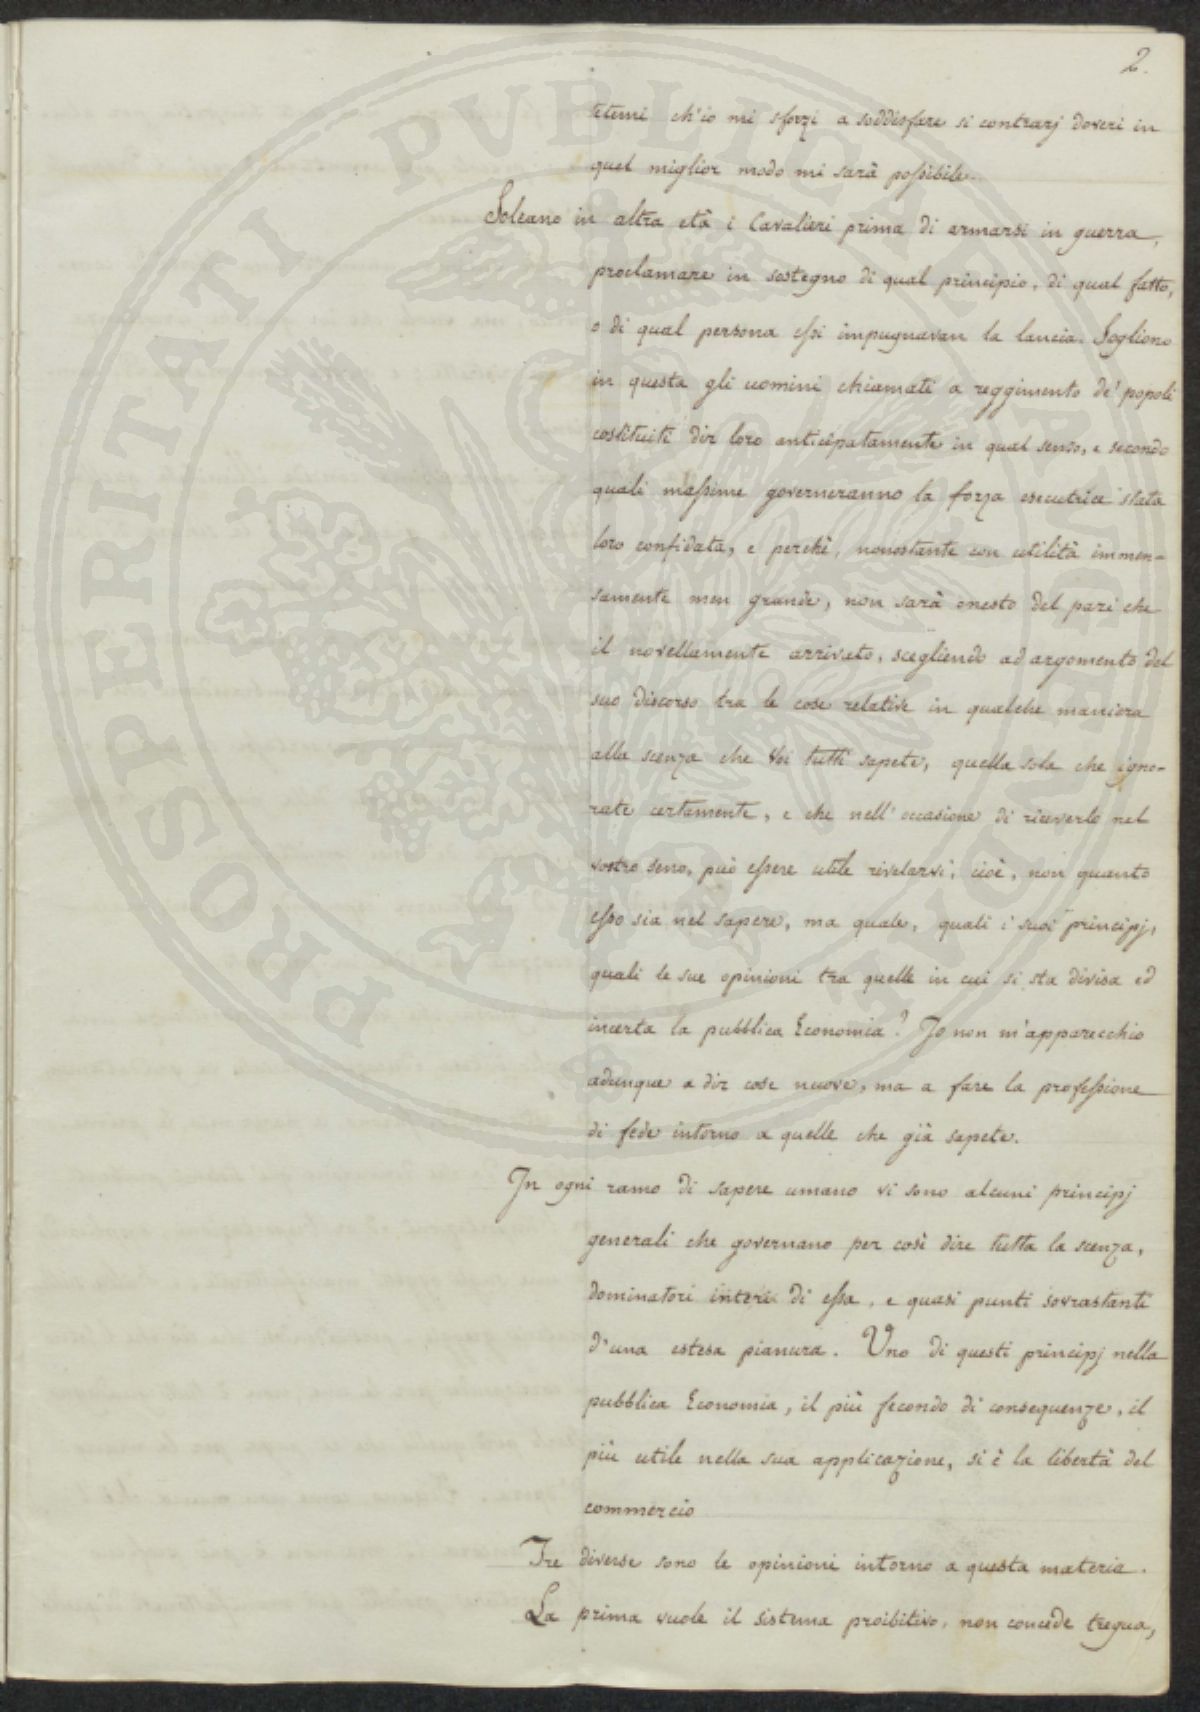 2.
tetemi ch'io mi sforzi a soddisfare sì contrarj doveri in
quel miglior modo mi sarà possibile.
Soleano in altra età i Cavalieri prima di armarsi in guerra,
proclamare in sostegno di qual principio, di qual fatto,
o di qual persona essi impugnavan la lancia. Sogliono
in questa gli uomini chiamati a reggimento de' popoli
costituiti dir loro anticipatamente in qual senso, e secondo
quali massime governeranno la forza esecutrice stata
loro confidata, e perchè, nonostante con utilità immen-
samente men grande, non sarà onesto del pari che
il novellamente arrivato, scegliendo ad argomento del
suo discorso tra le cose relative in qualche maniera
alla scenza che Voi tutti sapete, quella sola che igno-
rate certamente, e che nell'occasione di riceverlo nel
vostro seno, può essere utile rivelarvi, cioè, non quanto
esso sia nel sapere, ma quale, quali i suoi principj,
quali le sue opinioni tra quelle in cui si sta divisa ed
incerta la pubblica Economia? Io non m'apparecchio
adunque a dir cose nuove, ma a fare la professione
di fede intorno a quelle che già sapete.
In ogni ramo di sapere umano vi sono alcuni principj
generali che governano per così dire tutta la scenza,
dominatori interi di essa, e quasi punti sovrastanti
d'una estesa pianura. Uno di questi principj nella
pubblica Economia, il più fecondo di conseguenze, il
più utile nella sua applicazione, si è la libertà del
commercio
Tre diverse sono le opinioni intorno a questa materia.
La prima vuole il sistema proibitivo, non concede tregua,
PROSPERITATI PVBLICAE